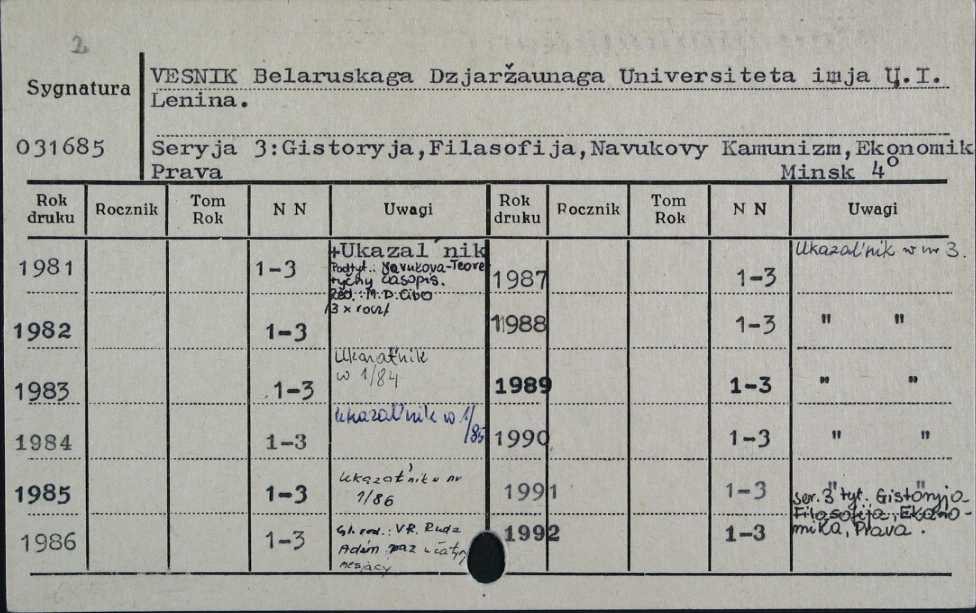 2
Sygnatura
VESNIK Belaruskaga Dzjaržaunaga Universiteta imja U.I.
Lenina.
031685
Seryja 3:Gistoryja,Filasofija,Navukovy Kamunizm,Ekonomik
Prava Minsk 4°
Rok druku Rocznik Tom Rok N N Uwagi Rok druku Rocznik Tom Rok N N Uwagi
1981 1-3 +Ukazal'nik
Podtyt.: Navukova-Teore
tyčny časopis.
Red.: M.D.Cibo
/3 x rocz/
1987 1-3 Ukazal'nik w nr 3.
1982 1-3
1988 1-3 " "
1983 1-3 Ukazal'nik
w 1/84
1989 1-3 " "
1984 1-3 Ukazal'nik w 1/
/85
1990 1-3 " "
1985 1-3 Ukazal'nik w nr
1/86
1991 1-3 " "
1986 1-3 Gł. red.: VR. Ruda
Adzin raz u čatyry
mesjacy
1992 1-3 ser. 3 tyt. Gistoryja
Filasofija, Ekano-
mika, Prava.